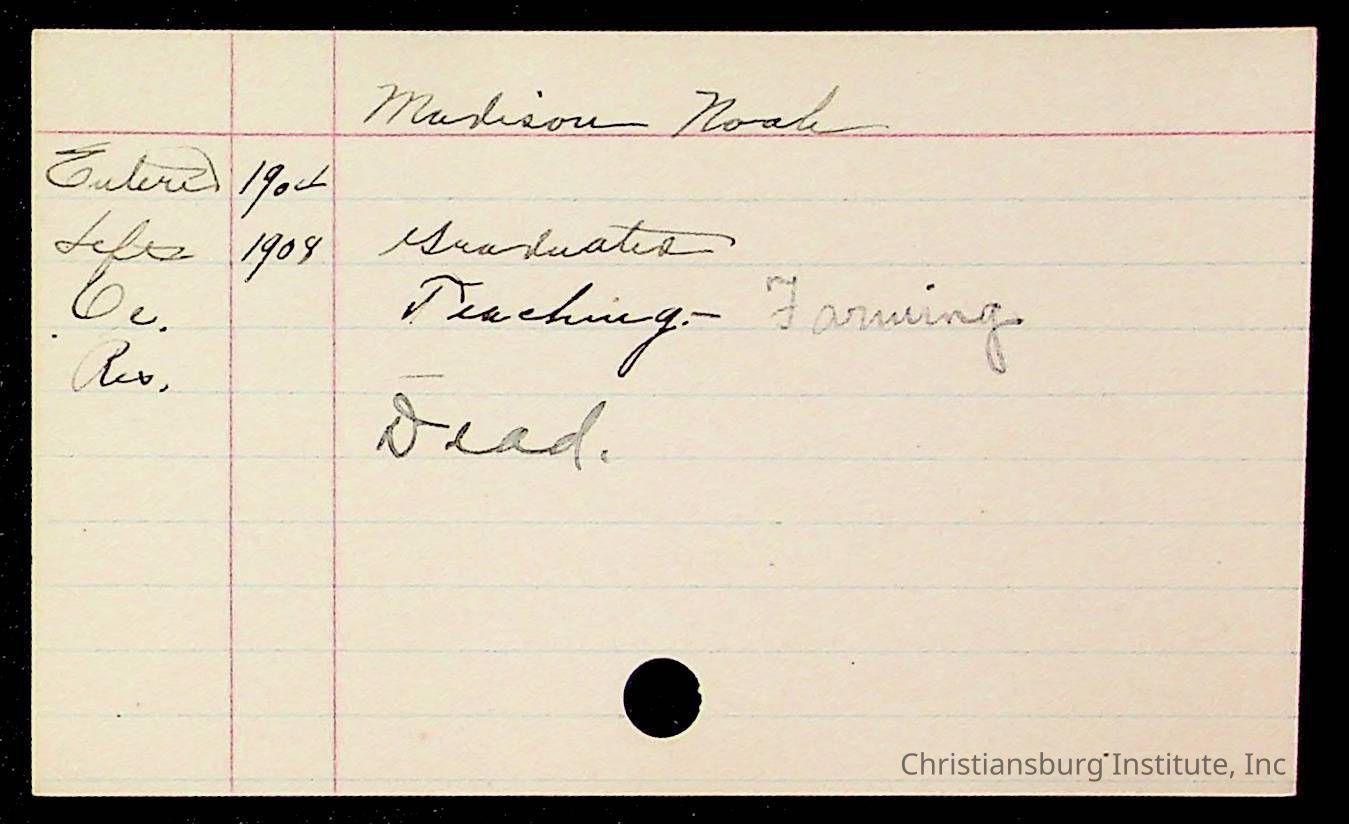 Madison Noah
Entered 1904
Left 1908 Graduated
Oc. Teaching.- Farming
Res. —
Dead.
Christiansburg Institute, Inc